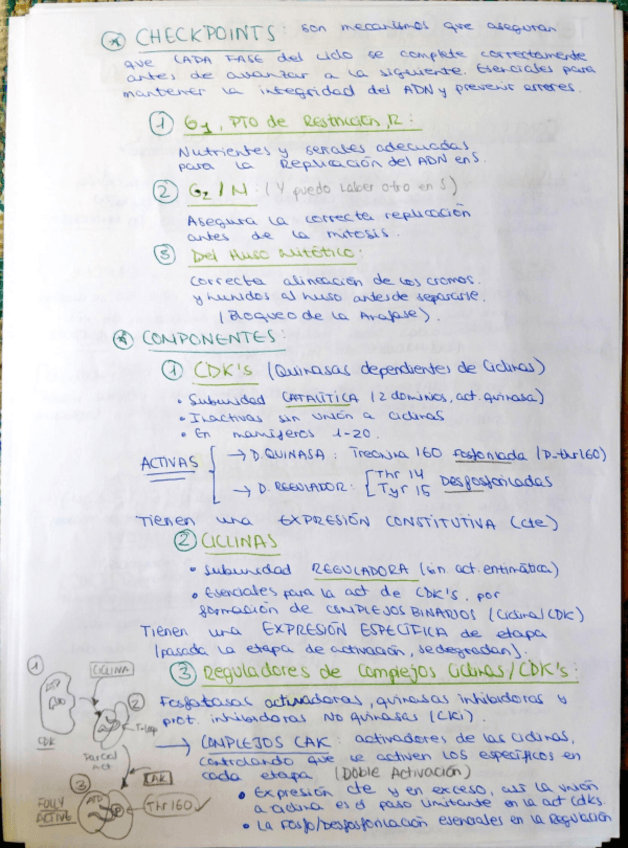 * CHECKPOINTS: son mecanismos que aseguran
que CADA FASE del ciclo se complete correctamente
antes de avanzar a la siguiente. Esenciales para
mantener la integridad del ADN y prevenir errores.
① G1, PTO de Restricción, R:
Nutrientes y señales adecuadas
para la Replicación del ADN en S.
② G2/M: (Y puedo haber otro en S)
Asegura la correcta replicación
antes de la mitosis.
③ Del Huso Mitótico:
Correcta alineación de los cromos.
y hunidos al huso antes de separarse.
(Bloqueo de la Anafase).
* COMPONENTES:
① CDK's (Quinasas dependientes de Ciclinas)
• Subunidad CATALÍTICA (2 dominios, act. quinasa)
• Inactivas sin unión a ciclinas
• En mamíferos 1-20.
ACTIVAS
→ D. QUINASA: Treonina 160 Fosforilada (P-thr160)
→ D. REGULADOR: Thr 14
Tyr 15 Desfosforiladas
Tienen una EXPRESIÓN CONSTITUTIVA (cte)
② CICLINAS
• Subunidad REGULADORA (sin act. enzimática)
• Esenciales para la act de CDK's, por
formación de COMPLEJOS BINARIOS (Ciclina/CDK)
Tienen una EXPRESIÓN ESPECÍFICA de etapa
(pasada la etapa de activación, se degradan).
③ Reguladores de Complejos Ciclinas/CDK's:
Fosfatasas activadoras, quinasas inhibidoras y
prot. inhibidoras NO quinasas (CKi).
→ COMPLEJOS CAK: activadores de las ciclinas,
controlando que se activen los específicos en
cada etapa (Doble Activación)
• Expresión cte y en exceso, así la unión
a ciclina es el paso limitante en la act Cdks.
• La Fosfo/Desfosforilación esenciales en la Regulación
①
CICLINA
CDK
②
T-loop
Parcial
Act
CAK
③
FULLY
ACTIVE
Thr160